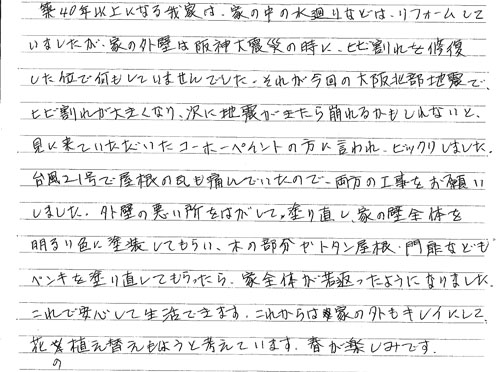 築40年以上になる我家は、家の中の水廻りなどは、リフォームして
いましたが、家の外壁は阪神大震災の時に、ヒビ割れを修復
した位で何もしていませんでした。それが今回の大阪北部地震で、
ヒビ割れが大きくなり、次に地震が来たら崩れるかもしれないと、
見に来ていただいたコーホーペイントの方に言われ、ビックリしました。
台風21号で屋根の瓦も痛んでいたので、両方の工事をお願い
しました。外壁の悪い所をはがして、塗り直し、家の壁全体を
明るい色に塗装してもらい、木の部分やトタン屋根・門扉なども
ペンキを塗り直してもらったら、家全体が若返ったようになりました。
これで安心して生活できます。これからは家の外もキレイにして、
花の植え替えもしようと考えています。春が楽しみです。